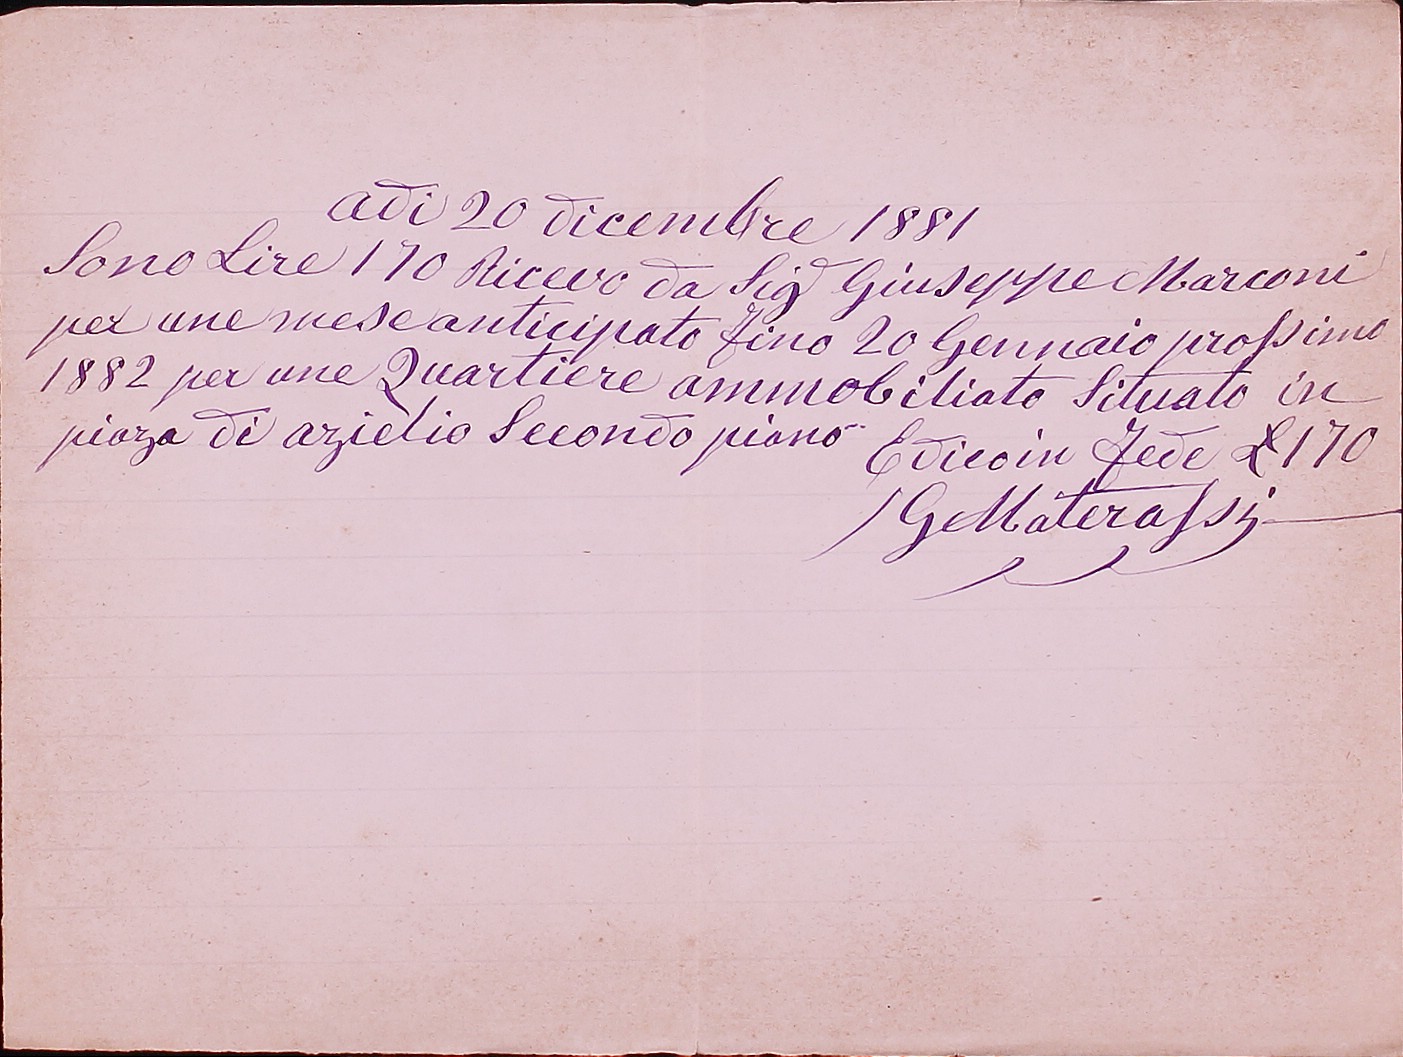 adi 20 dicembre 1881
Sono Lire 170 Ricevo da Sigr Giuseppe Marconi
per une mese anticipato fino 20 Gennaio prossimo
1882 per une Quartiere ammobiliato Situato in
piaza di azielio Secondo piano
E dico in fede £ 170
G Materassi